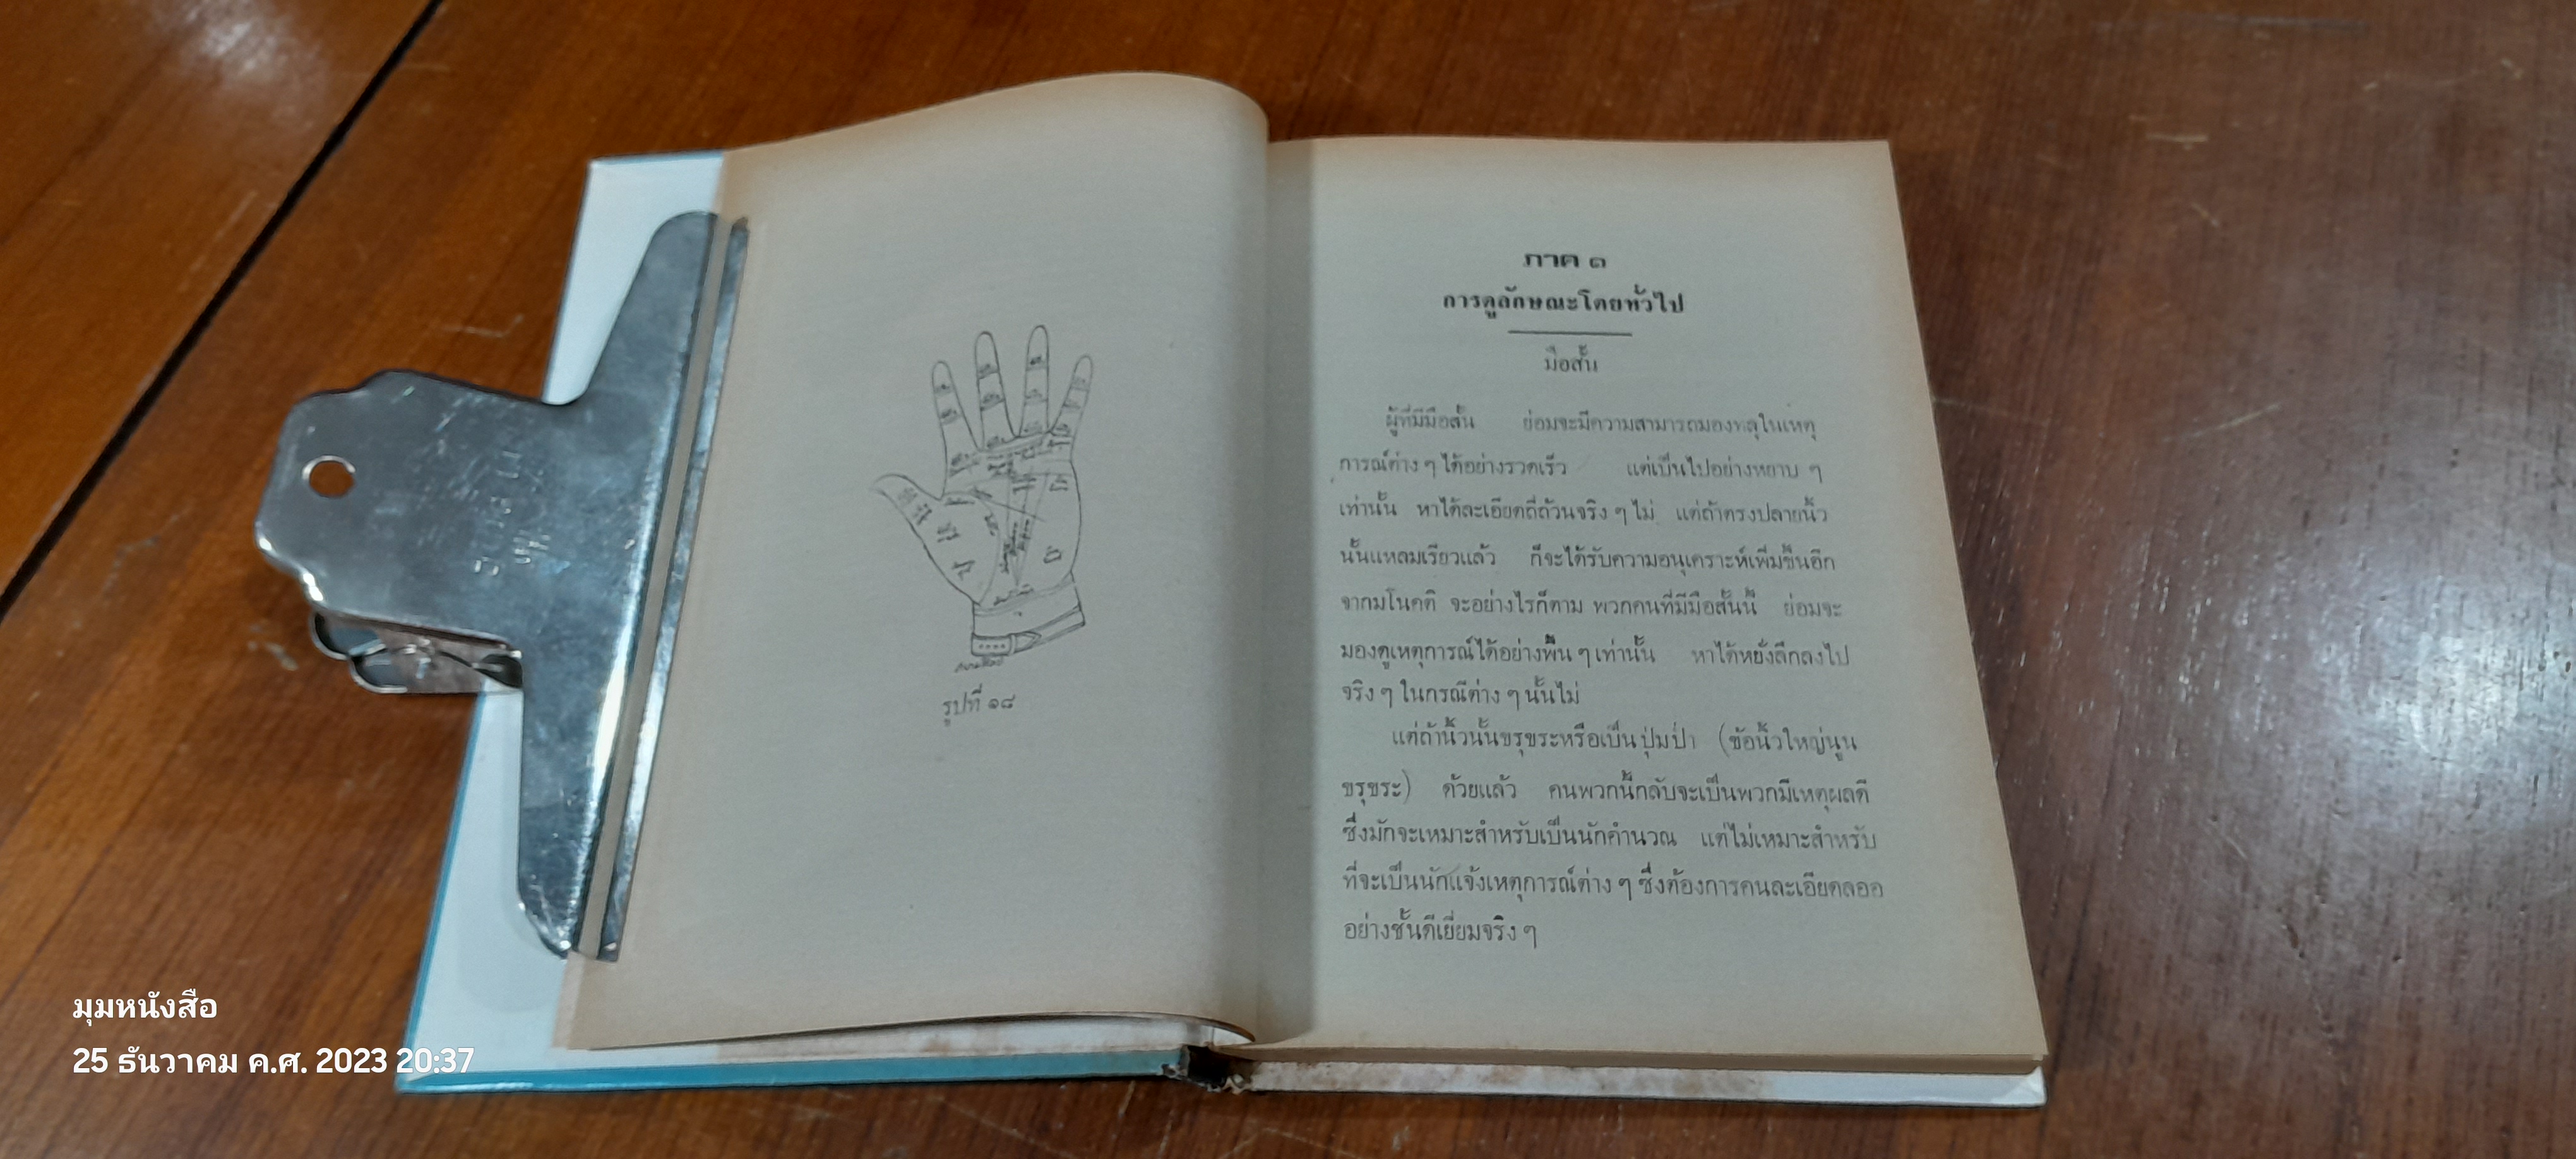 รูปที่ ๑๘
ภาค ๑
การดูลักษณะโดยทั่วไป
มือสั้น
ผู้ที่มีมือสั้น ย่อมจะมีความสามารถมองทะลุในเหตุ
การณ์ต่าง ๆ ได้อย่างรวดเร็ว แต่เป็นไปอย่างหยาบ ๆ
เท่านั้น หาได้ละเอียดถี่ถ้วนจริง ๆ ไม่ แต่ถ้าตรงปลายนิ้ว
นั้นแหลมเรียวแล้ว ก็จะได้รับความอนุเคราะห์เพิ่มขึ้นอีก
จากมโนคติ จะอย่างไรก็ตาม พวกคนที่มีมือสั้นนี้ ย่อมจะ
มองดูเหตุการณ์ได้อย่างพื้น ๆ เท่านั้น หาได้หยั่งลึกลงไป
จริง ๆ ในกรณีต่าง ๆ นั้นไม่
แต่ถ้านิ้วนั้นขรุขระหรือเป็นปุ่มป่ำ (ข้อนิ้วใหญ่นูน
ขรุขระ) ด้วยแล้ว คนพวกนี้กลับจะเป็นพวกมีเหตุผลดี
ซึ่งมักจะเหมาะสำหรับเป็นนักคำนวณ แต่ไม่เหมาะสำหรับ
ที่จะเป็นนักแจ้งเหตุการณ์ต่าง ๆ ซึ่งต้องการคนละเอียดลออ
อย่างชั้นดีเยี่ยมจริง ๆ
มุมหนังสือ
25 ธันวาคม ค.ศ. 2023 20:37